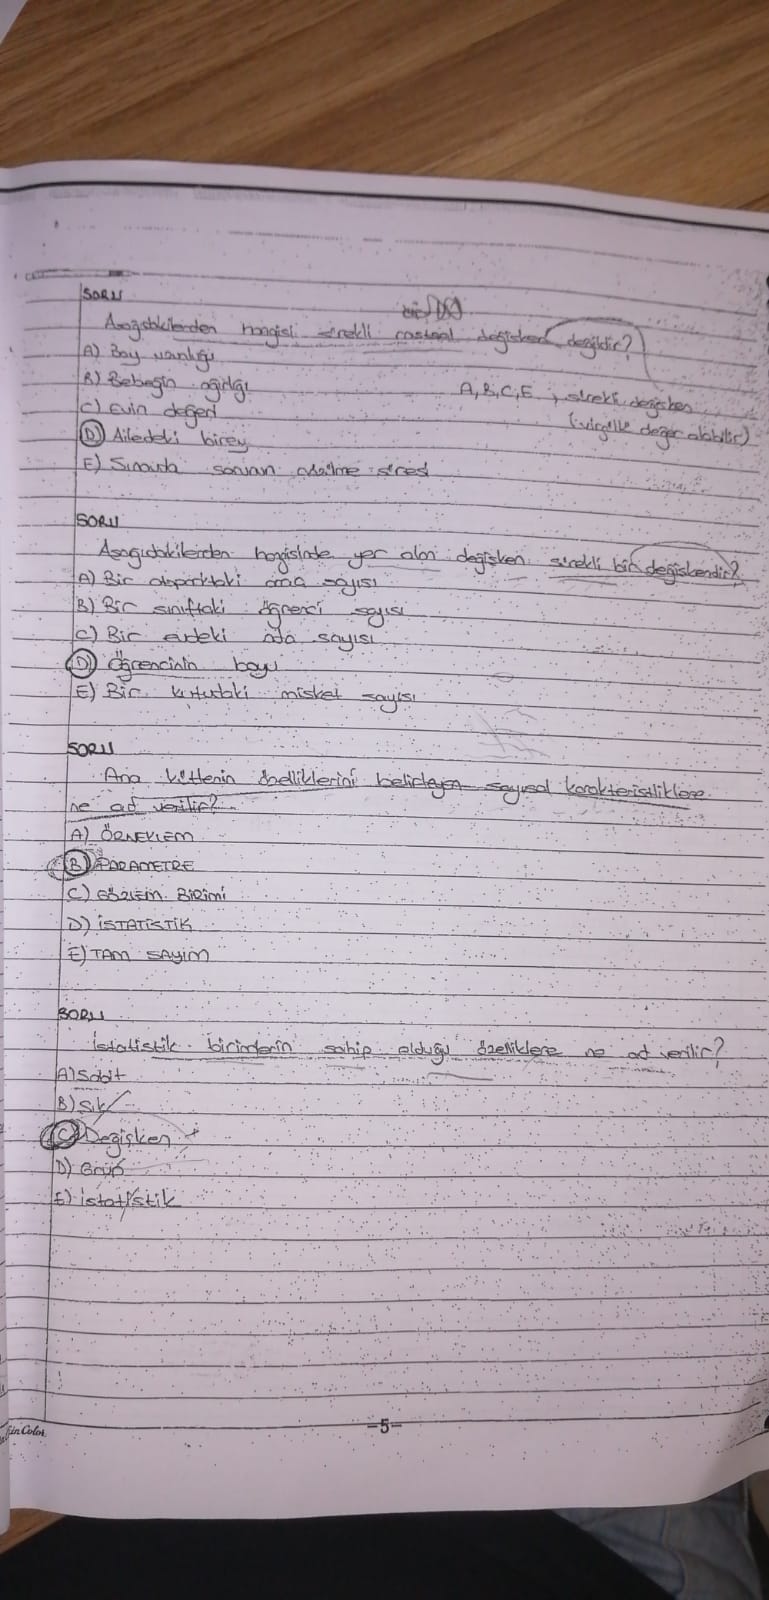 SORU
Aşağıdakilerden hangisi sürekli rastsal değişken değildir?
A) Boy uzunluğu
B) Bebeğin ağırlığı
A, B, C, E, sürekli değişken
C) Evin değeri
(virgüllü değer alabilir)
D) Ailedeki birey
E) Sınavda soruları
SORU
Aşağıdakilerden hangisinde yer alan değişken sürekli bir değişkendir?
A) Bir otoparktaki sayısı
B) Bir sınıftaki öğrenci sayısı
C) Bir evdeki oda sayısı
D) Öğrencinin boyu
E) Bir kutudaki misket sayısı
SORU
Ana kütlenin özelliklerini belirleyen sayısal karakteristiklere
ne ad verilir?
A) ÖRNEKLEM
B) PARAMETRE
C) GÖZLEM BİRİMİ
D) İSTATİSTİK
E) TAM SAYIM
SORU
İstatistik birimlerin sahip olduğu özelliklere ne ad verilir?
A) Sabit
B) Şık
C) Değişken
D) Grup
E) İstatistik
-5-